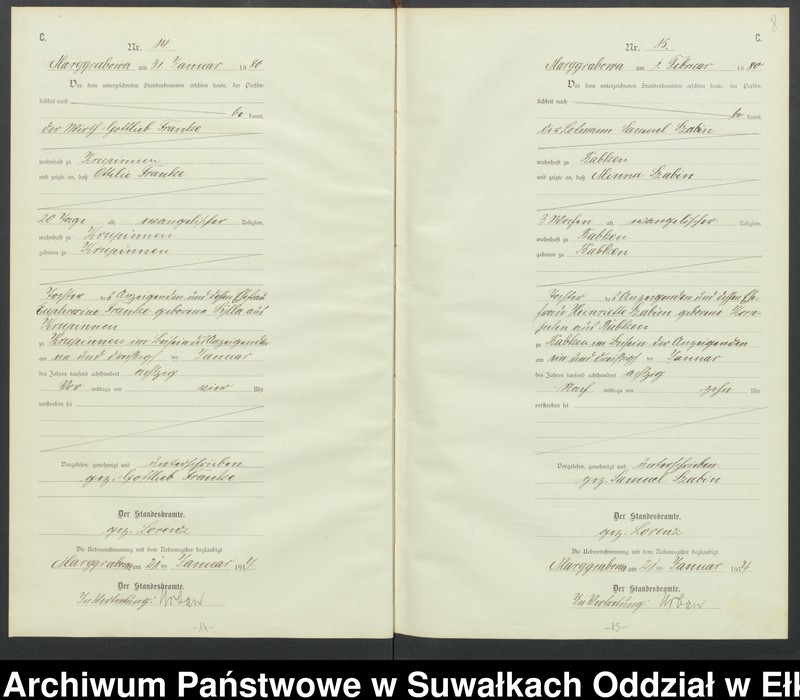 C.
Nr. 14.
Marggrabowa am 31 Januar 1880
Vor dem unterzeichneten Standesbeamten erschien heute, der Persön-
lichkeit nach
bekannt,
der Wirth Gottlieb Franke
wohnhaft zu Krupinnen
und zeigte an, daß Ottilie Franke
20 Tage alt, evangelischer Religion,
wohnhaft zu Krupinnen
geboren zu Krupinnen
Tochter des Anzeigenden und dessen Ehefrau
Franke geborene aus
Krupinnen
zu Krupinnen im Beisein des Anzeigenden
am ein und dreißig ten Januar
des Jahres tausend achthundert achtzig
Vor mittags um vier Uhr
verstorben sei
Vorgelesen, genehmigt und unterschrieben.
gez. Gottlieb Franke
Der Standesbeamte.
gez. Lorenz
Die Uebereinstimmung mit dem Nebenregister beglaubigt
Marggrabowa am 21 ten Januar 1924.
Der Standesbeamte.
In Vertretung: Urban
-14-
8
C.
Nr. 15.
Marggrabowa am 1. Februar 1880
Vor dem unterzeichneten Standesbeamten erschien heute, der Persön-
lichkeit nach
bekannt,
der Losmann Samuel Szabin
wohnhaft zu Babken
und zeigte an, daß Minna Szabin
3 Wochen alt, evangelischer Religion,
wohnhaft zu Babken
geboren zu Babken
Tochter des Anzeigenden und dessen Ehe-
frau Heinriette Szabien geborene
aus Babken
zu Babken im Beisein der Anzeigenden
am ein und dreißig ten Januar
des Jahres tausend achthundert achtzig
Nach mittags um zehn Uhr
verstorben sei
Vorgelesen, genehmigt und unterschrieben.
gez. Samuel Szabin
Der Standesbeamte.
gez. Lorenz
Die Uebereinstimmung mit dem Nebenregister beglaubigt
Marggrabowa am 21 ten Januar 1924.
Der Standesbeamte.
In Vertretung: Urban
-15-
Archiwum Państwowe w Suwałkach Oddział w Eł